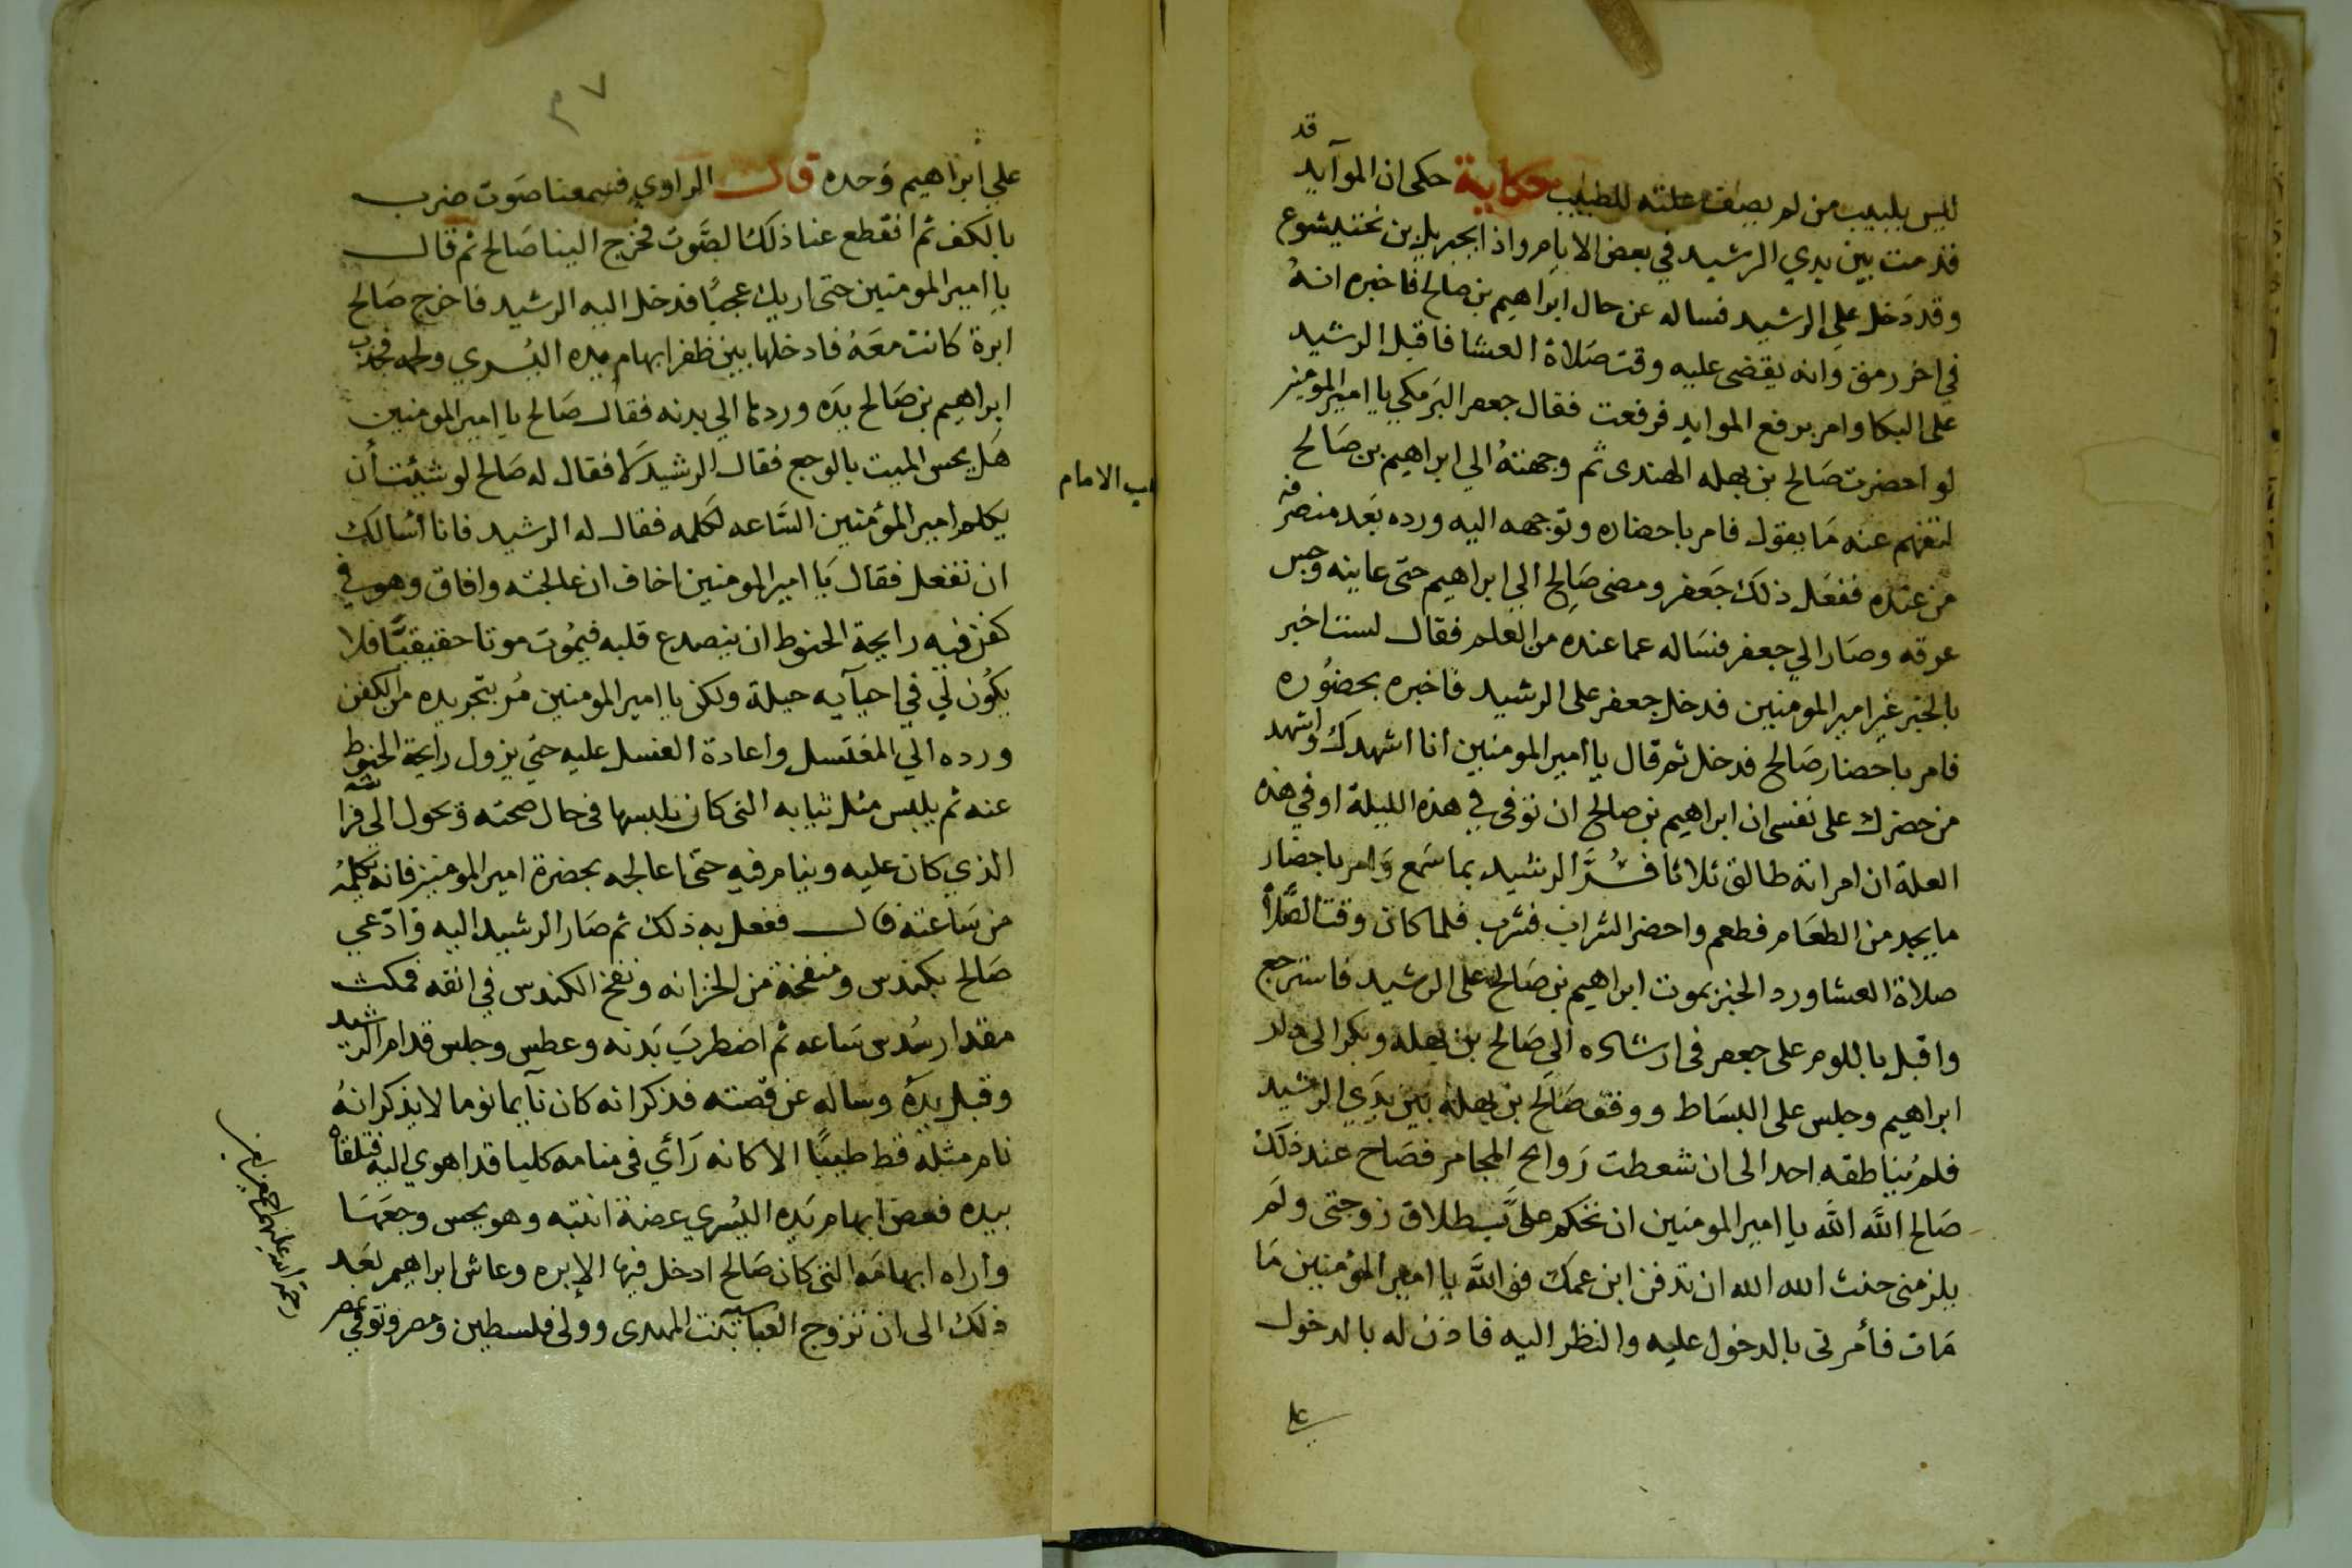 قد
ليس بلبيب من لم يصف علته للطبيب حكاية حكى ان الموآيد
قدمت بين يدي الرشيد في بعض الايام واذا بجبريل بن بختيشوع
وقد دخل علي الرشيد فساله عن حال ابراهيم بن صالح فاخبره انه
في اخر رمق وانه يقضى عليه وقت صلاة العشا فاقبل الرشيد
على البكا وامر برفع الموايد فرفعت فقال جعفر البرمكي يا امير المومنين
لو احضرت صالح بن بهله الهندى ثم وجهته الي ابراهيم بن صالح
لتفهم عنه ما يقول فامر باحضاره وتوجهه اليه ورده بعد منصرفه
من عنده ففعل ذلك جعفر ومضى صالح الي ابراهيم حتى عاينه وجس
عرقه وصار الي جعفر فساله عما عنده من العلم فقال لست اخبر
بالخبر غير امير المومنين فدخل جعفر على الرشيد فاخبره بحضوره
فامر باحضار صالح فدخل ثم قال يا امير المومنين انا اشهدك واشهد
من حضرك على نفسى ان ابراهيم بن صالح ان توفى في هذه الليلة او في هذه
العلة ان امراته طالق ثلاثا فسر الرشيد بما سمع وامر باحضار
ما يجد من الطعام فطعم واحضر الشراب فشرب فلما كان وقت الصلاة
صلاة العشا ورد الخبر بموت ابراهيم بن صالح على الرشيد فاسترجع
واقبل باللوم على جعفر فى ارشاده الي صالح بن بهله وبكر الى دار
ابراهيم وجلس على البساط ووقف صالح بن بهله بين يدي الرشيد
فلم يناطقه احد الى ان شعطت روايح المجامر فصاح عند ذلك
صالح الله الله يا امير المومنين ان تحكم على بطلاق زوجتى ولم
يلزمنى حنث الله الله ان تدفن ابن عمك فوالله يا امير المؤمنين ما
مات فأمرنى بالدخول عليه والنظر اليه فاذن له بالدخول
على
٣٧
علي ابراهيم وحده قال الراوي فسمعنا صوت ضرب
بالكف ثم انقطع عنا ذلك الصوت فخرج الينا صالح ثم قال
يا امير المومنين حتى اريك عجبا فدخل اليه الرشيد فاخرج صالح
ابرة كانت معه فادخلها بين ظفر ابهام يده اليسري ولحمه فجذب
ابراهيم بن صالح يده وردها الي بدنه فقال صالح يا امير المومنين
هل يحس الميت بالوجع فقال الرشيد لا فقال له صالح لو شئت أن
يكلم امير المؤمنين الساعه لكلمه فقال له الرشيد فانا اسالك
ان تفعل فقال يا امير المومنين اخاف ان عالجته وافاق وهو في
كفن فيه رايحة الحنوط ان ينصدع قلبه فيموت موتا حقيقيا فلا
يكون لي في احيآيه حيلة ولكن يا امير المومنين مر بتجريده من الكفن
ورده الي المغتسل واعادة الغسل عليه حتي يزول رايحة الحنوط
عنه ثم يلبس مثل ثيابه التى كان يلبسها فى حال صحته وتحول الي فراشه
الذي كان عليه وينام فيه حتى اعالجه بحضرة امير المومنين فانه يكلمه
من ساعته قال ففعل به ذلك ثم صار الرشيد اليه وادعي
صالح بكندس ومنفخة من الخزانه ونفخ الكندس في انفه فمكث
مقدار سدس ساعه ثم اضطرب بدنه وعطس وجلس قدام الرشيد
وقبل يده وساله عن قصته فذكر انه كان نآيما نوما لا يذكر انه
نام مثله قط طيبا الا كانه رأي فى منامه كلبا قد اهوي اليه فتلقاه
بيده فعض ابهام يده اليسري عضة انتبه وهو يحس وجعها
وأراه ابهامه التى كان صالح ادخل فيها الإبره وعاش ابراهيم بعد
ذلك الى ان تزوج العباسية بنت المهدى وولى فلسطين ومصر وتوفي بمصر
رحمة الله عليهم اجمعين
ب الامام